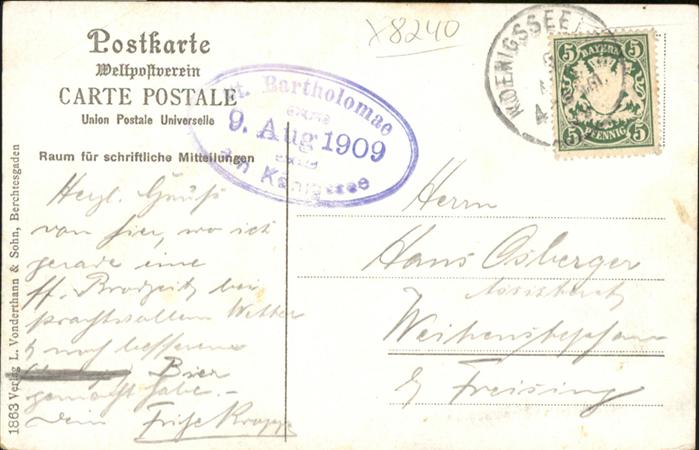 X8240
Postkarte
Weltpostverein
CARTE POSTALE
Union Postale Universelle
Raum für schriftliche Mitteilungen
St. Bartholomae
9. Aug 1909
am Königssee
KOENIGSSEE
5 BAYERN 5
5 PFENNIG 5
Herzl. Gruß
von hier, wo ich
gerade eine
ff. Brodzeit bei
prachtvollem Wetter
& noch besserem
Bier
gemacht habe.-
Dein Fritz Kropp
Herrn
Hans Osberger
Assistent
Weihenstephan
b/ Freising
1863 Verlag L. Vonderthann & Sohn, Berchtesgaden